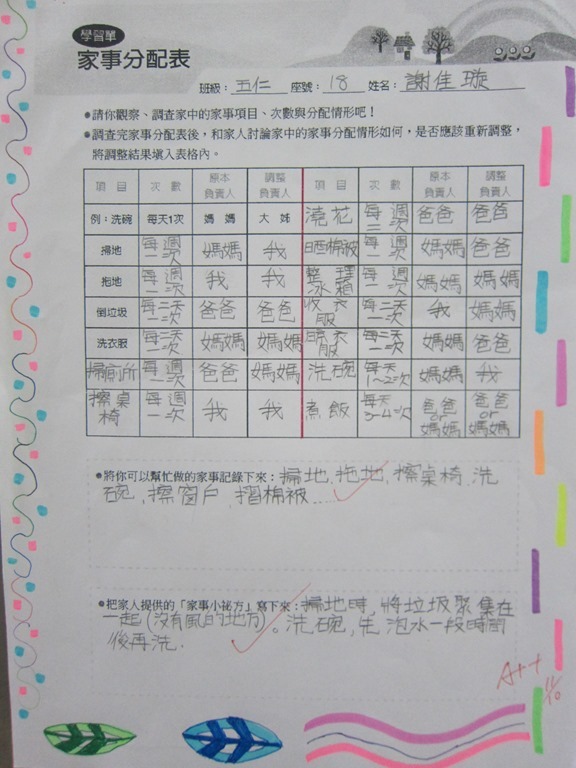 學習單
家事分配表
班級：五仁 座號：18 姓名：謝佳璇
●請你觀察、調查家中的家事項目、次數與分配情形吧！
●調查完家事分配表後，和家人討論家中的家事分配情形如何，是否應該重新調整，
將調整結果填入表格內。
項目 次數 原本負責人 調整負責人 項目 次數 原本負責人 調整負責人
例：洗碗 每天1次 媽媽 大姊 澆花 每週二次 爸爸 爸爸
掃地 每週一次 媽媽 我 晒棉被 每週一次 媽媽 爸爸
拖地 每週一次 我 我 整理冰箱 每週一次 媽媽 媽媽
倒垃圾 每二天一次 爸爸 爸爸 收衣服 每二天一次 我 媽媽
洗衣服 每二天一次 媽媽 媽媽 晾衣服 每二天一次 媽媽 爸爸
掃廁所 每週一次 爸爸 媽媽 洗碗 每天1~2次 媽媽 我
擦桌椅 每週一次 我 我 煮飯 每天3~4次 爸爸or媽媽 爸爸or媽媽
●將你可以幫忙做的家事記錄下來：掃地、拖地、擦桌椅、洗
碗、擦窗戶、摺棉被……
●把家人提供的「家事小祕方」寫下來：掃地時，將垃圾聚集在
一起（沒有風的地方）。洗碗，先泡水一段時間
後再洗.
A++
11/10